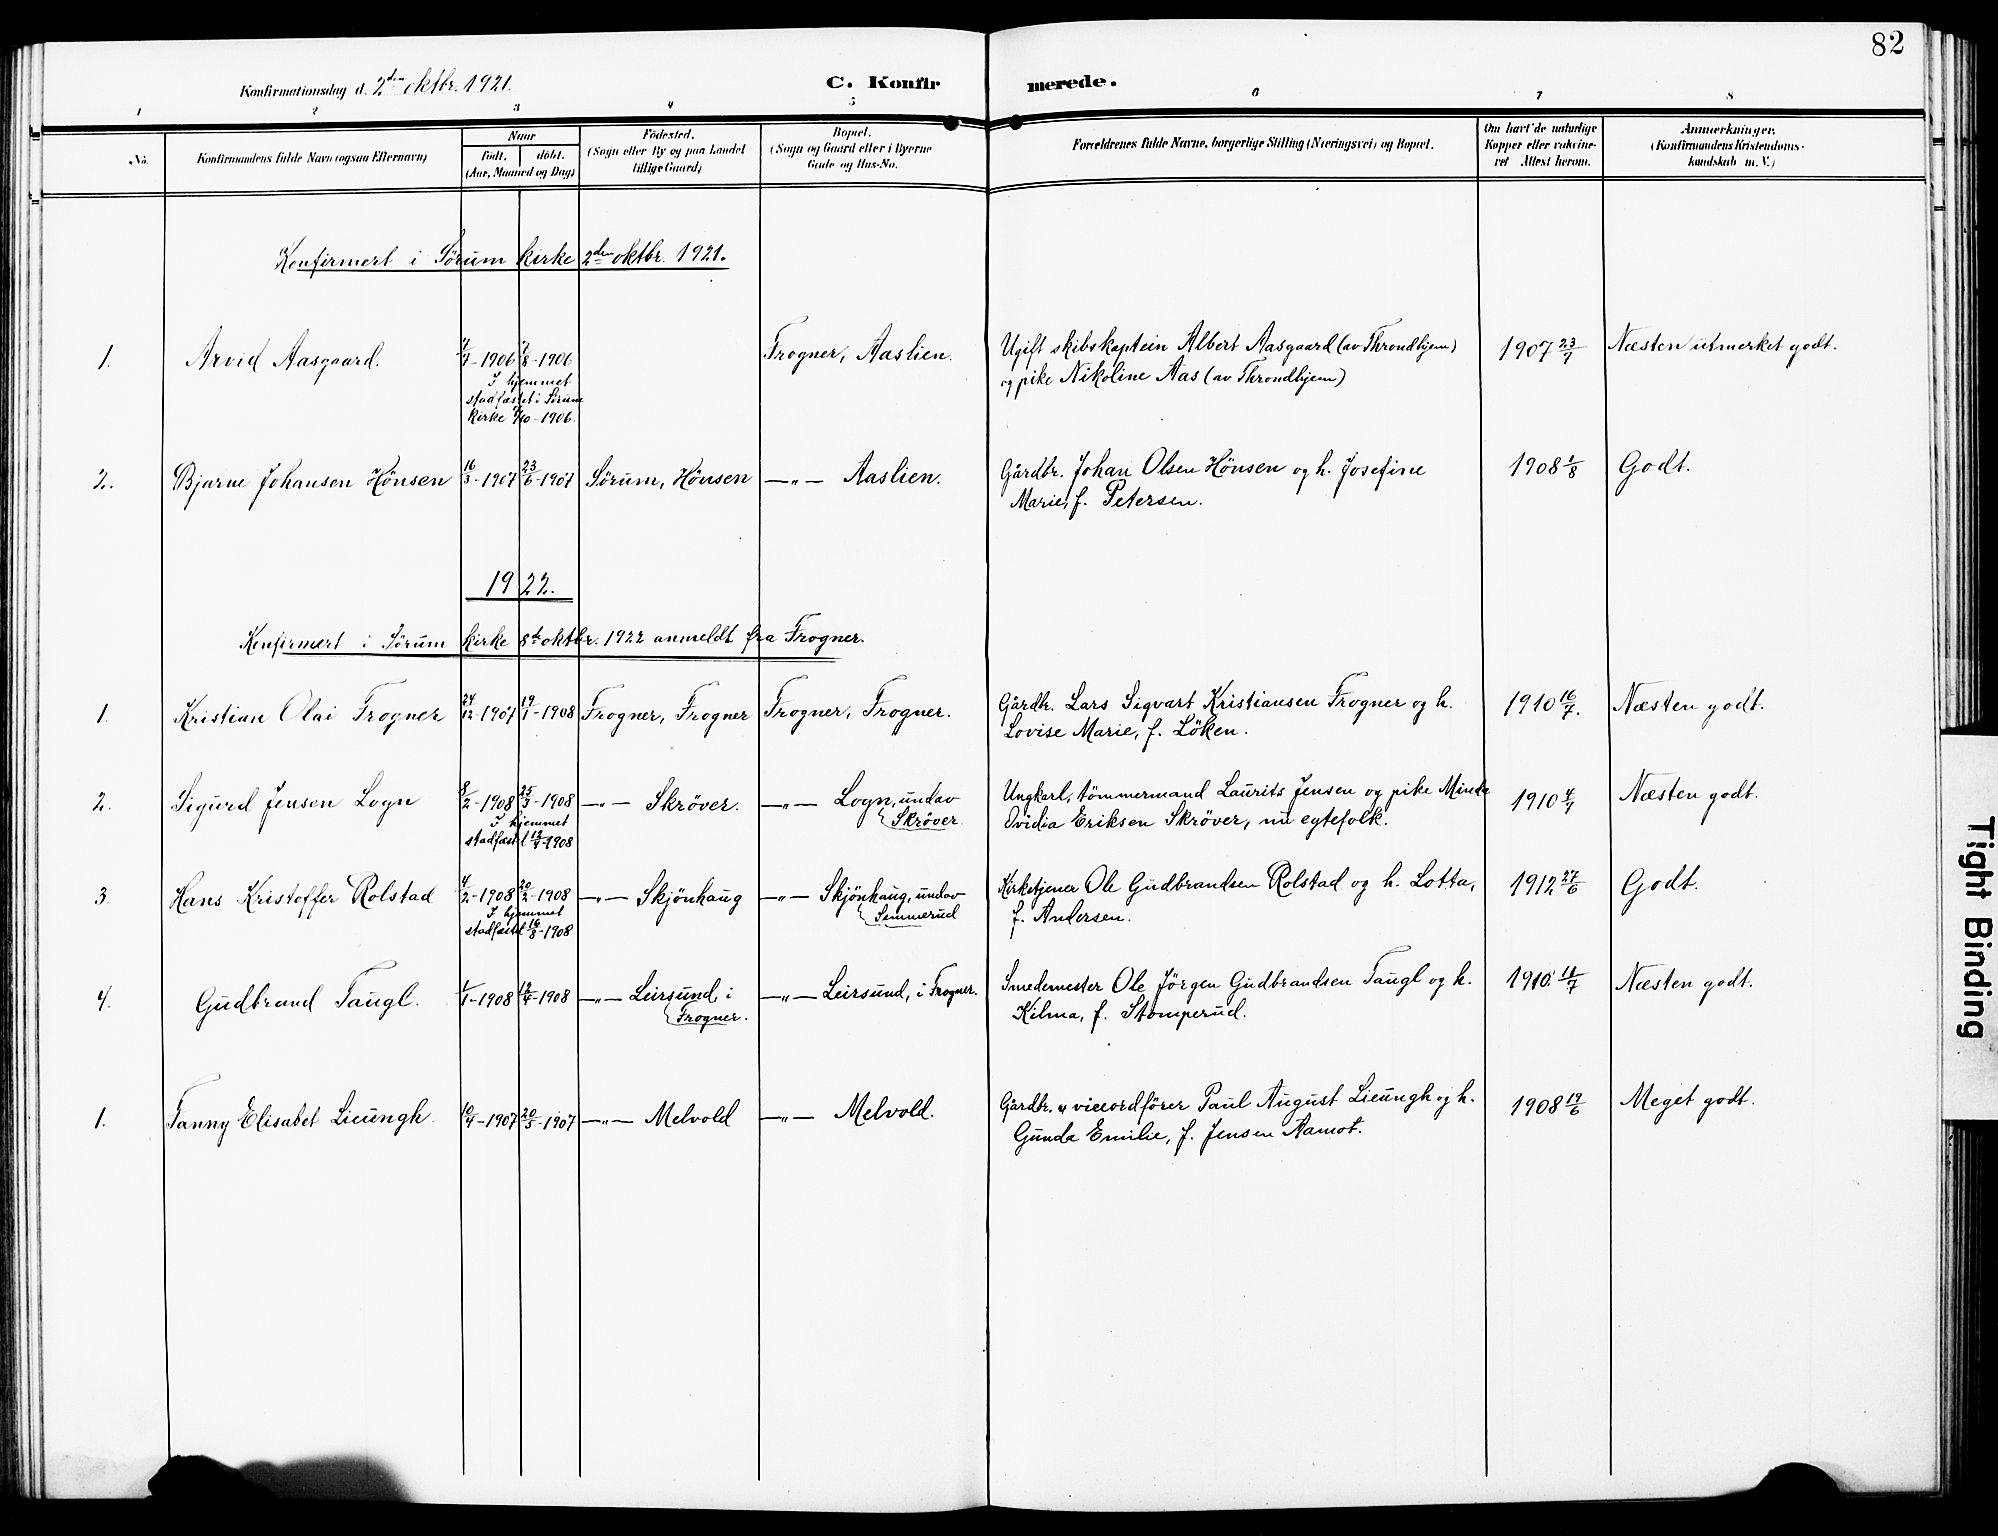 82
Konfirmationsdag d. 2den oktbr. 1921.
C. Konfirmerede.
1 2 3 4 5 6 7 8
No.
Konfirmandens fulde Navn (ogsaa Efternavn)
Naar
født. døbt.
(Aar, Maaned og Dag)
Fødested.
(Sogn eller By og paa Landet
tillige Gaard)
Bopæl.
(Sogn og Gaard eller i Byerne
Gade og Hus-No.
Forældrenes fulde Navne, borgerlige Stilling (Næringsvei) og Bopæl.
Om havt de naturlige
Kopper eller vakcine-
ret Attest herom.
Anmærkninger.
(Konfirmandens Kristendoms-
kundskab m. V.)
Konfirmert i Sörum kirke 2den oktbr. 1921.
1. Arvid Aasgaard. 1906 7/8-1906 Frogner, Aaslien. Ugift skibskaptein Albert Aasgaard (av Throndhjem) 1907 23/7 Næsten utmerket godt.
I hjemmet
og pike Nikoline Aas (av Throndhjem)
stadfæstet i Sörum
kirke 1906.
2. Bjarne Johansen Hönsen 16/3-1907 23/6-1907 Sörum, Hönsen —"— Aaslien. Gårdbr. Johan Olsen Hönsen og h. Josefine 1908 1/8 Godt.
Marie, f. Petersen.
1922.
Konfirmert i Sörum kirke 8de oktbr. 1922 anmeldt fra Frogner.
1. Kristian Olai Frogner 24/12-1907 19/1-1908 Frogner, Frogner Frogner, Frogner. Gårdbr. Lars Sigvart Kristiansen Frogner og h. 1910 16/7. Næsten godt.
Lovise Marie, f. Löken.
2. Sigurd Jensen Logn 8/2-1908 25/3-1908 —"— Skröver. —"— Logn, undav Ungkarl, tömmermand Laurits Jensen og pike Minda 1910 4/7 Næsten godt.
I hjemmet
Skröver.
Ovidia Eriksen Skröver, nu egtefolk.
stadfæstet 12/4-1908
3. Hans Kristoffer Rolstad 4/2-1908 20/2-1908 —"— Skjönhaug —"— Skjönhaug, undav Kirketjener Ole Gudbrandsen Rolstad og h. Lotta, 1912 27/6 Godt.
I hjemmet
Semmerud
f. Andersen.
stadfæstet 16/8-1908
4. Gudbrand Taugl. 1/1-1908 12/4-1908 —"— Leirsund, i —"— Leirsund, i Frogner. Smedemester Ole Jörgen Gudbrandsen Taugl og h. 1910. 11/7 Næsten godt.
Frogner.
Kilma, f. Stomperud.
1. Fanny Elisabet Lieungh. 10/4-1907 20/5-1907 —"— Melvold —"— Melvold. Gårdbr. & viceordförer Paul August Lieungh og h. 1908 19/6 Meget godt.
Gunda Emilie, f. Jensen Aamot.
Tight Binding